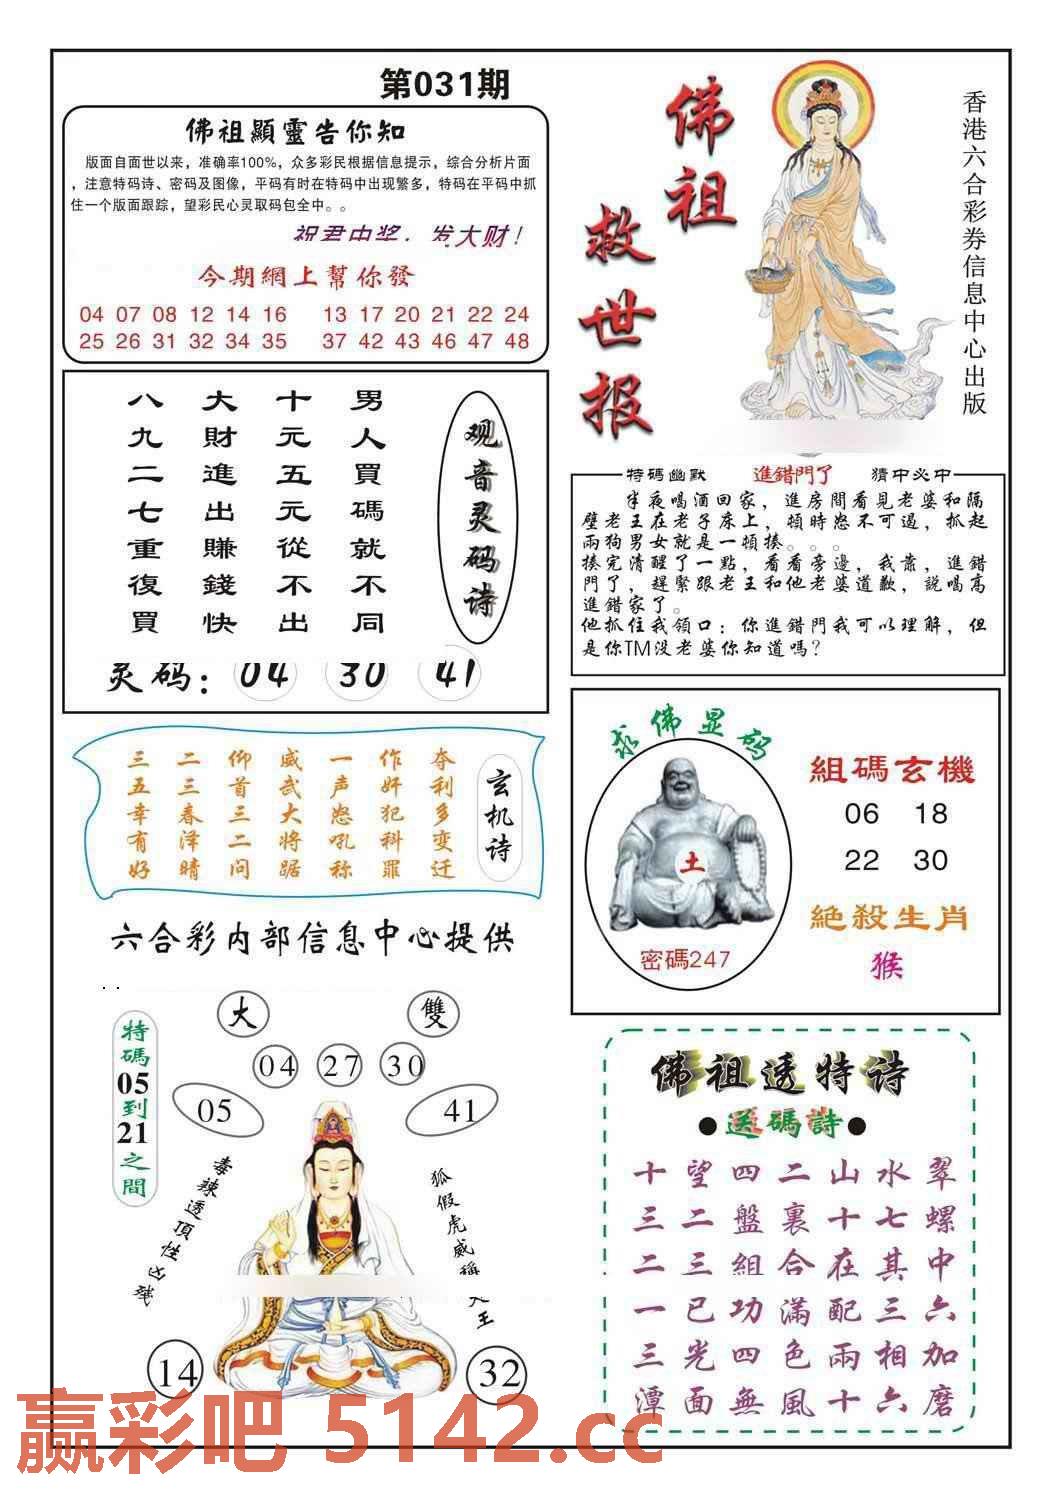 第031期
佛祖顯靈告你知
版面自面世以来，准确率100%，众多彩民根据信息提示，综合分析片面
，注意特码诗、密码及图像，平码有时在特码中出现繁多，特码在平码中抓
住一个版面跟踪，望彩民心灵取码包全中。。
祝君中奖，发大财！
今期網上幫你發
04 07 08 12 14 16 13 17 20 21 22 24
25 26 31 32 34 35 37 42 43 46 47 48
佛祖
救世报
香港六合彩券信息中心出版
观音灵码诗
男人買碼就不同
十元五元從不出
大財進出賺錢快
八九二七重復買
灵码：04 30 41
特碼幽默 進錯門了 猜中必中
半夜喝酒回家，進房間看見老婆和隔
壁老王在老子床上，頓時怒不可遏，抓起
兩狗男女就是一頓揍。。。
揍完清醒了一點，看看旁邊，我靠，進錯
門了，趕緊跟老王和他老婆道歉，説喝高
進錯家了。
他抓住我領口：你進錯門我可以理解，但
是你TM没老婆你知道嗎？
玄机诗
夺利多变迁
作奸犯科罪
一声怒吼称
威武大将踞
仰首三二问
二三春泽晴
三五幸有好
求佛显码
土
密碼247
組碼玄機
06 18
22 30
絕殺生肖
猴
六合彩内部信息中心提供
大 雙
04 27 30
05 41
特碼05到21之間
毒辣透頂性凶残
狐假虎威稱
王
14 32
佛祖透特诗
●送碼詩●
十望四二山水翠
三二盤裏十七螺
二三組合在其中
一已功滿配三六
三光四色兩相加
潭面無風十六磨
赢彩吧 5142.cc